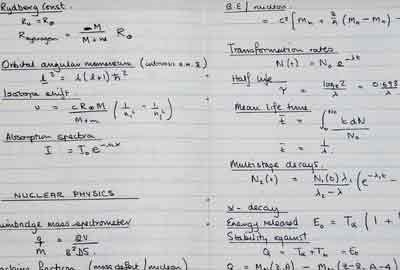 Rydberg Const.
R∞ = R∞
R hydrogen = M / M+m R∞
Orbital angular momentum
l² = l(l+1)ħ²
Isotope shift.
υ = cR∞M / M+m (1/n₁² - 1/n₂²)
Absorption spectra
I = I₀e
NUCLEAR PHYSICS
mass spectrometer
q/m =
fraction (mass defect / nucleon)
B.E / nucleon
= c² [Mn + Z/A (
Transformation rates
N(t) = N₀ e^-λt
Half life
τ = loge2 / λ = 0.693
Mean life time
t̄ = ∫ t dN / N₀
t̄ = 1/λ
Multistage decays.
N₂(t) = N₁(0) λ₁ / λ₂ - λ (e^-λ₁t -
α - decay
Energy released E₀ = Tα (1 +
Stability against
Q = Tα + Th = E₀
Q = M (Z,A) - M (Z-2, A-4)